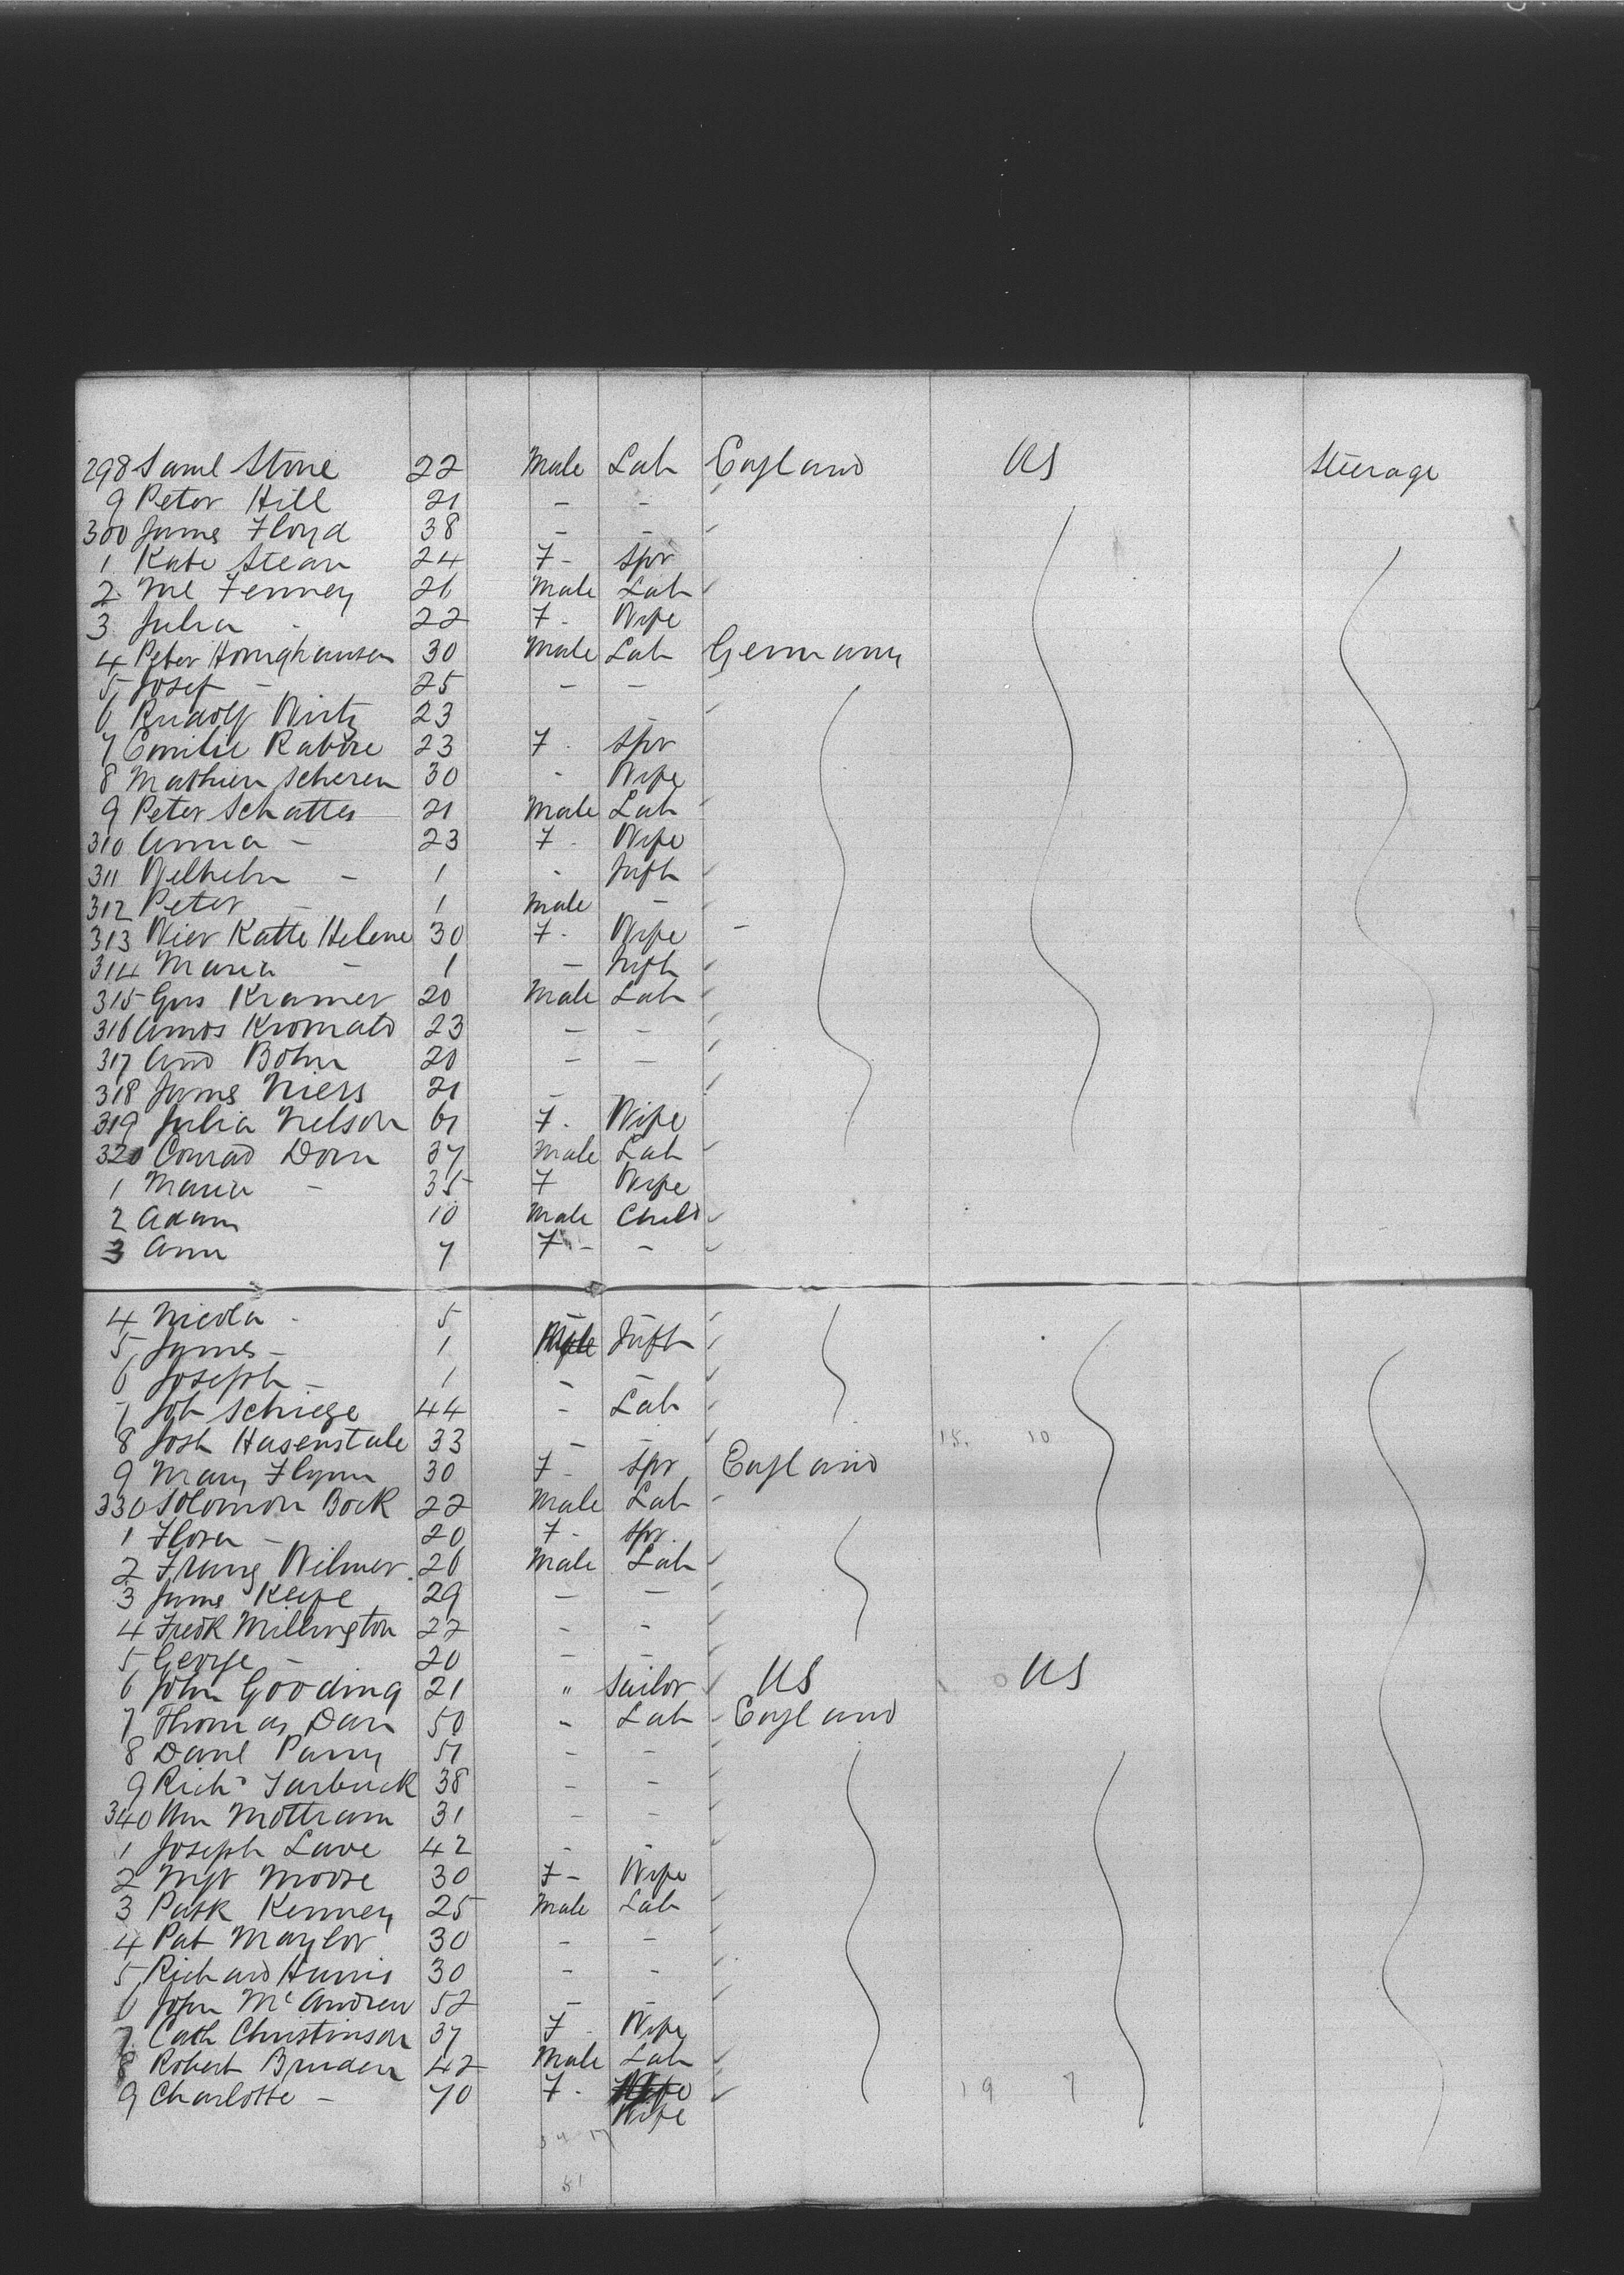 298 Saml Stone 22 Male Lab England US Steerage
9 Peter Hill 21 - -
300 James Floyd 38 - -
1 Kate Stean 24 F - Spr
2 Ml Fenney 26 Male Lab
3 Julia - 22 F - Wife
4 Peter Honighausen 30 Male Lab Germany
5 Josef - 25 - -
6 Rudolf Wirtz 23 -
7 Emilie Rabize 23 F - Spr
8 Mathieu Scheren 30 - Wife
9 Peter Schatter 21 Male Lab
310 Anna - 23 F - Wife
311 Wilhelm - 1 - Inft
312 Peter - 1 Male -
313 Wier Katte Helene 30 F - Wife -
314 Maria - 1 - Inft
315 Gus Kramer 20 Male Lab
316 Amos Kromato 23 - -
317 And Bohn 20 - -
318 James Niess 21 - -
319 Julia Nelson 61 F. Wife
320 Conrad Dorn 37 Male Lab
1 Maria - 35 F Wife
2 Adam 10 Male Child
3 Ann 7 F - -
4 Nicola - 5 - -
5 James - 1 Male Inft
6 Joseph - 1 - -
7 Joh Schiege 44 - Lab
8 Josh Hasenstale 33 - - 15. 10
9 Mary Flynn 30 F - Spr England
330 Solomon Bock 22 Male Lab -
1 Flora - 20 F - Spr.
2 Franz Wilmer. 26 Male Lab
3 James Keefe 29 - -
4 Fredk Millington 22 - -
5 George - 20 - -
6 John Gooding 21 " Sailor US US
7 Thomas Dan 50 - Lab England
8 Danl Parry 51 - -
9 Richd Tarbuck 38 - -
340 Wm Mottram 31 - -
1 Joseph Lave 42 - -
2 Mgt Moore 30 F - Wife
3 Patk Kenney 25 Male Lab
4 Pat Maylor 30 - -
5 Richard Harris 30 - -
6 John McAndrew 52 - -
7 Cath Christinson 37 F - Wife
8 Robert Bruden 42 Male Lab
9 Charlotte - 70 F - Wife 19 7
Wife
51